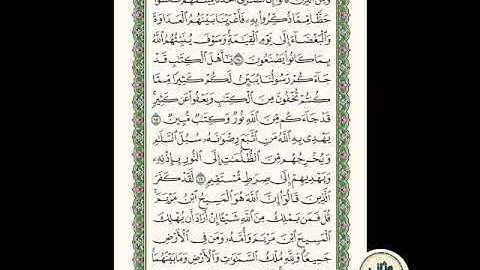 وَمِنَ الَّذِينَ قَالُوا إِنَّا نَصَارَىٰ أَخَذْنَا مِيثَاقَهُمْ فَنَسُوا
حَظًّا مِّمَّا ذُكِّرُوا بِهِ فَأَغْرَيْنَا بَيْنَهُمُ الْعَدَاوَةَ
وَالْبَغْضَاءَ إِلَىٰ يَوْمِ الْقِيَامَةِ وَسَوْفَ يُنَبِّئُهُمُ اللَّهُ
بِمَا كَانُوا يَصْنَعُونَ ١٤ يَا أَهْلَ الْكِتَابِ قَدْ
جَاءَكُمْ رَسُولُنَا يُبَيِّنُ لَكُمْ كَثِيرًا مِّمَّا
كُنتُمْ تُخْفُونَ مِنَ الْكِتَابِ وَيَعْفُو عَن كَثِيرٍ
قَدْ جَاءَكُم مِّنَ اللَّهِ نُورٌ وَكِتَابٌ مُّبِينٌ ١٥
يَهْدِي بِهِ اللَّهُ مَنِ اتَّبَعَ رِضْوَانَهُ سُبُلَ السَّلَامِ
وَيُخْرِجُهُم مِّنَ الظُّلُمَاتِ إِلَى النُّورِ بِإِذْنِهِ
وَيَهْدِيهِمْ إِلَىٰ صِرَاطٍ مُّسْتَقِيمٍ ١٦ لَّقَدْ كَفَرَ
الَّذِينَ قَالُوا إِنَّ اللَّهَ هُوَ الْمَسِيحُ ابْنُ مَرْيَمَ
قُلْ فَمَن يَمْلِكُ مِنَ اللَّهِ شَيْئًا إِنْ أَرَادَ أَن يُهْلِكَ
الْمَسِيحَ ابْنَ مَرْيَمَ وَأُمَّهُ وَمَن فِي الْأَرْضِ
جَمِيعًا وَلِلَّهِ مُلْكُ السَّمَاوَاتِ وَالْأَرْضِ وَمَا بَيْنَهُمَا